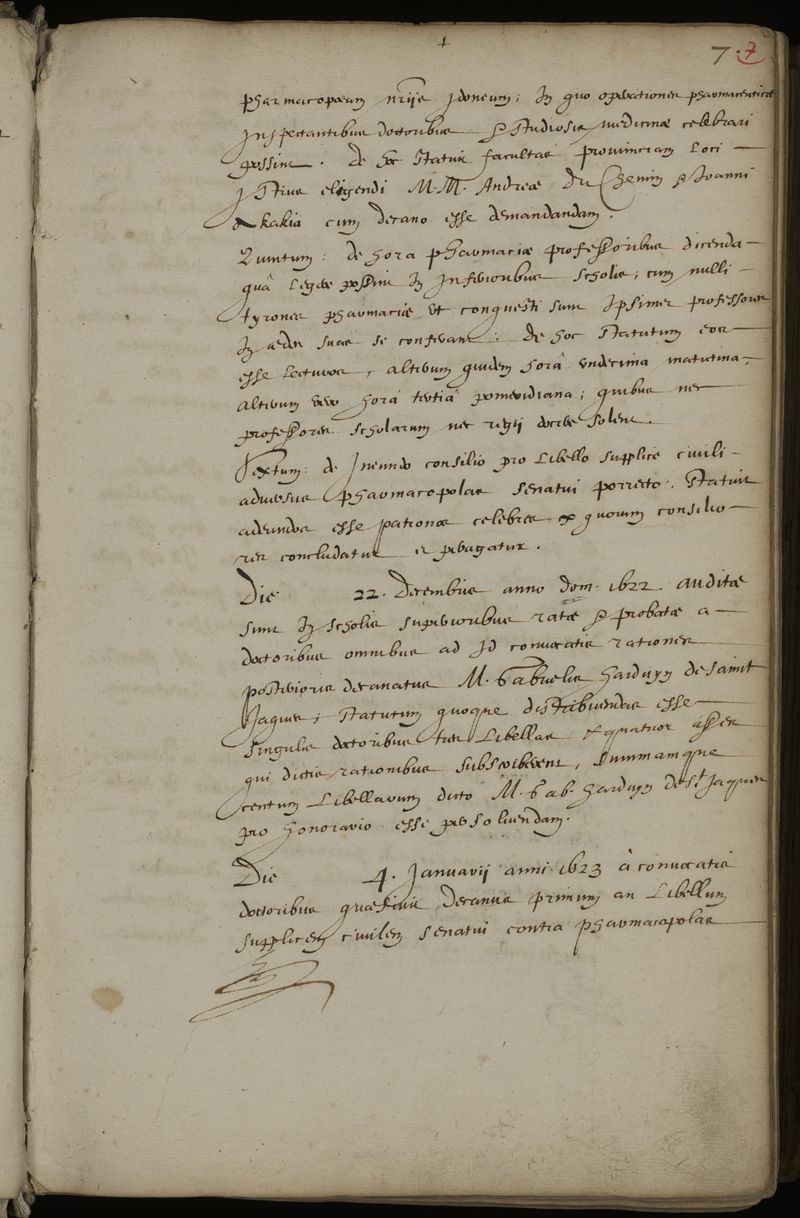 7. 7
pharmacopœam nr̃ae idoneum; In quo operationes pharmaceuticæ
Inspectantibus doctoribus & studiosis medicinæ celebrari
possint. De hoc statuit facultas provinciam loci
istius eligendi M. M. Andreæ Du Chemin & Joanni
Akakia cum decano esse demandandam.
Quintum: de hora pharmaciæ professoribus dicenda
quâ legere possint In Inferioribus scholis; cum nulli
tyrones pharmaciæ ut conquesti sunt Ipsimet professores
In ædes suas se conferant: De hoc statutum eos
esse lecturos, alterum quidem horâ undecima matutina,
alterum vero horâ tertiâ pomeridiana; quibus nec
professores scholarum nec regij docere solent.
Sextum: de Ineundo consilio pro libello supplice civili
adversus pharmacopolas senatui porrecto. Statuit
adeundos esse patronos celebres ex quorum consilio
res concludatur et peragatur.
Die 22. Decembris anno dom. 1622. auditæ
sunt In scholis superioribus ratæ & probatæ a
doctoribus omnibus ad Id convocatis rationes
posterioris decanatus M. Gabrielis harduyn de saint
Jaques; statutum quoque distribuendas esse
singulis doctoribus tres libellas & quatuor asses
qui dictis rationibus subscriberent, summamque
centum libellarum dicto M. Gab. harduyn de St Jaques
pro honorario esse persolvendam.
Die 4. Januarij anni 1623 a convocatis
doctoribus quæsivit Decanus primum an libellum
supplicem civilem senatui contra pharmacopolas